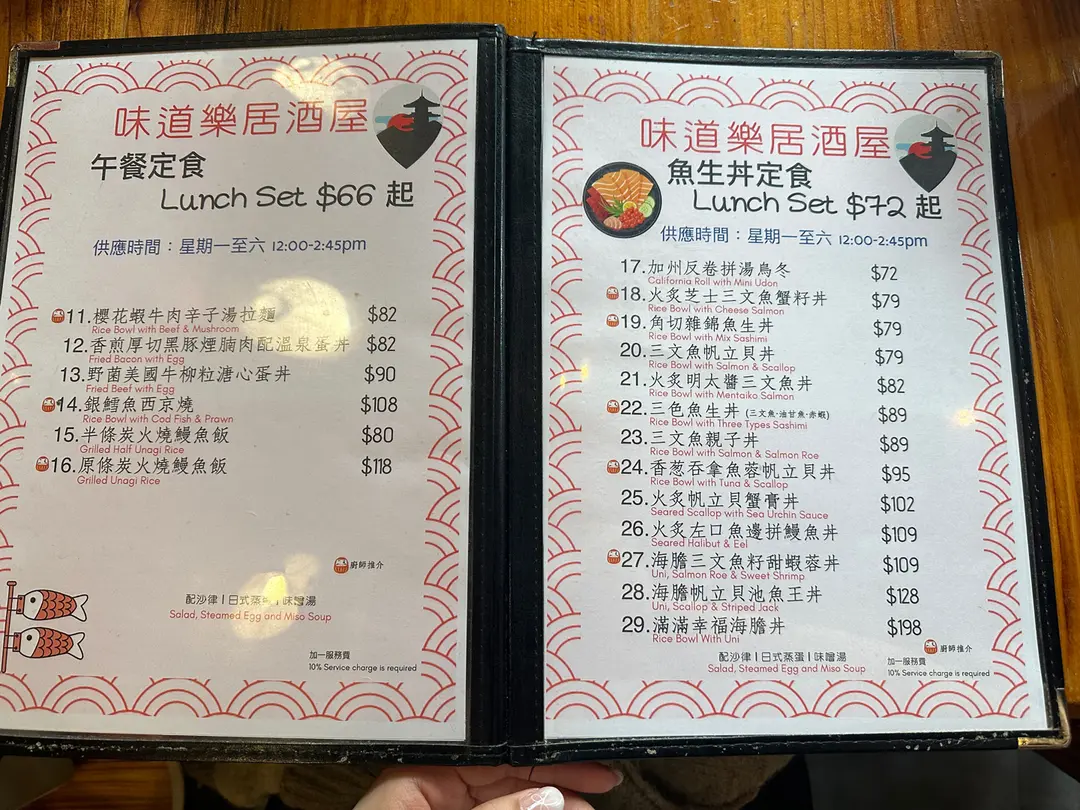 味道樂居酒屋
午餐定食
Lunch Set $66 起
供應時間：星期一至六 12:00-2:45pm
11.櫻花蝦牛肉辛子湯拉麵 $82
Rice Bowl with Beef & Mushroom
12.香煎厚切黑豚煙腩肉配溫泉蛋丼 $82
Fried Bacon with Egg
13.野菌美國牛柳粒溏心蛋丼 $90
Fried Beef with Egg
14.銀鱈魚西京燒 $108
Rice Bowl with Cod Fish & Prawn
15.半條炭火燒鰻魚飯 $80
Grilled Half Unagi Rice
16.原條炭火燒鰻魚飯 $118
Grilled Unagi Rice
廚師推介
配沙律 | 日式蒸 | 味噌湯
Salad, Steamed Egg and Miso Soup
加一服務費
10% Service charge is required
味道樂居酒屋
魚生丼定食
Lunch Set $72 起
供應時間：星期一至六 12:00-2:45pm
17.加州反卷拼湯烏冬 $72
California Roll with Mini Udon
18.火炙芝士三文魚蟹籽丼 $79
Rice Bowl with Cheese Salmon
19.角切雜錦魚生丼 $79
Rice Bowl with Mix Sashimi
20.三文魚帆立貝丼 $79
Rice Bowl with Salmon & Scallop
21.火炙明太醬三文魚丼 $82
Rice Bowl with Mentaiko Salmon
22.三色魚生丼 (三文魚·油甘魚·赤蝦) $89
Rice Bowl with Three Types Sashimi
23.三文魚親子丼 $89
Rice Bowl with Salmon & Salmon Roe
24.香葱吞拿魚蓉帆立貝丼 $95
Rice Bowl with Tuna & Scallop
25.火炙帆立貝蟹膏丼 $102
Seared Scallop with Sea Urchin Sauce
26.火炙左口魚邊拼鰻魚丼 $109
Seared Halibut & Eel
27.海膽三文魚籽甜蝦蓉丼 $109
Uni, Salmon Roe & Sweet Shrimp
28.海膽帆立貝池魚王丼 $128
Uni, Scallop & Striped Jack
29.滿滿幸福海膽丼 $198
Rice Bowl With Uni
廚師推介
配沙律 | 日式蒸蛋 | 味噌湯
Salad, Steamed Egg and Miso Soup
加一服務費
10% Service charge is required